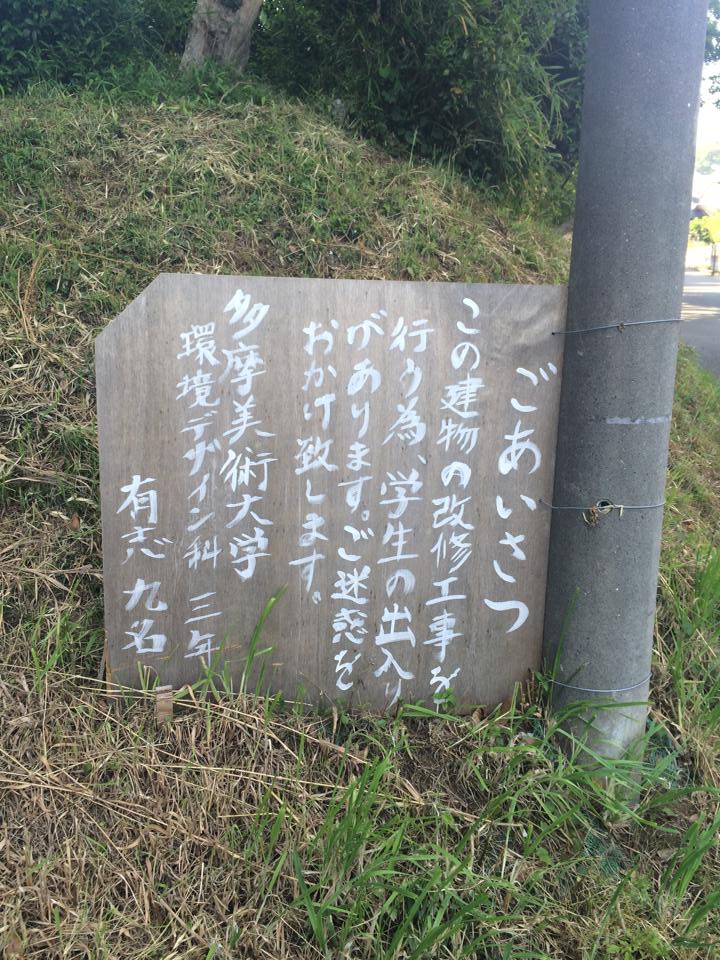 ごあいさつ
この建物の改修工事を
行う為、学生の出入り
があります。ご迷惑を
おかけ致します。
多摩美術大学
環境デザイン科 三年
有志 九名